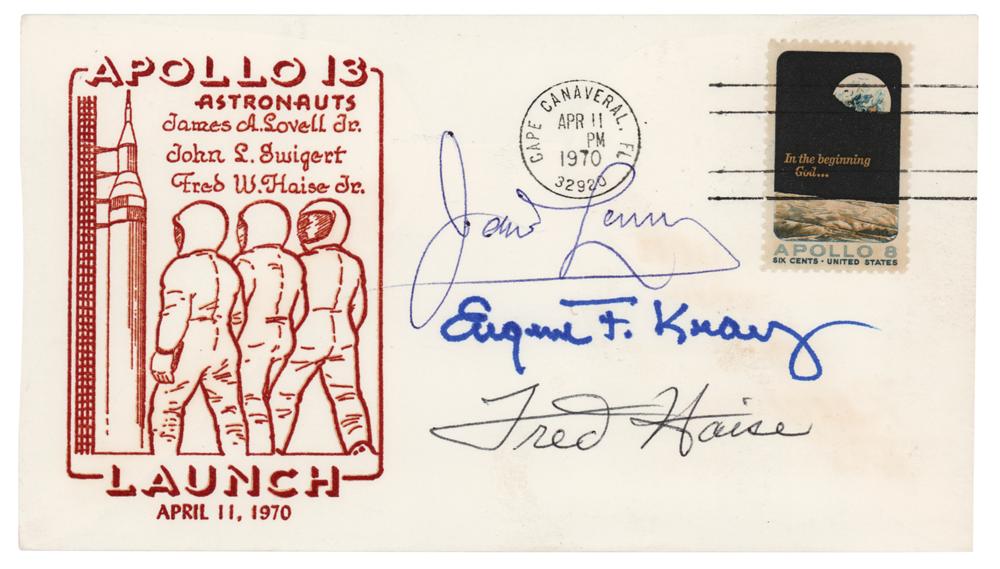 APOLLO 13
ASTRONAUTS
James A. Lovell Jr.
John L. Swigert
Fred W. Haise Jr.
LAUNCH
APRIL 11, 1970
CAPE CANAVERAL, FL
APR 11
PM
1970
32920
In the beginning
God...
APOLLO 8
SIX CENTS · UNITED STATES
Eugene F. Kranz
Fred Haise